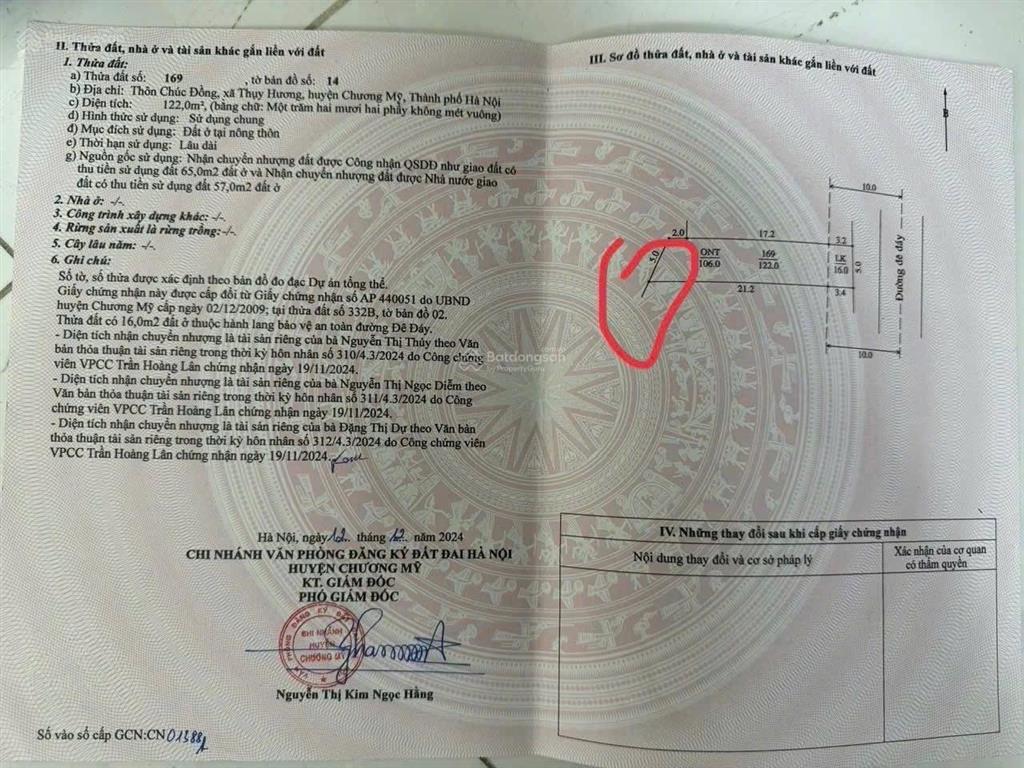 II. Thửa đất, nhà ở và tài sản khác gắn liền với đất
1. Thửa đất:
a) Thửa đất số: 169 , tờ bản đồ số: 14
b) Địa chỉ: Thôn Chúc Đồng, xã Thụy Hương, huyện Chương Mỹ, Thành phố Hà Nội
c) Diện tích: 122,0m², (bằng chữ: Một trăm hai mươi hai phẩy không mét vuông)
d) Hình thức sử dụng: Sử dụng chung
đ) Mục đích sử dụng: Đất ở tại nông thôn
e) Thời hạn sử dụng: Lâu dài
g) Nguồn gốc sử dụng: Nhận chuyển nhượng đất được Công nhận QSDĐ như giao đất có
thu tiền sử dụng đất 65,0m2 đất ở và Nhận chuyển nhượng đất được Nhà nước giao
đất có thu tiền sử dụng đất 57,0m2 đất ở
2. Nhà ở: -/-.
3. Công trình xây dựng khác: -/-.
4. Rừng sản xuất là rừng trồng:-/-.
5. Cây lâu năm: -/-.
6. Ghi chú:
Số tờ, số thửa được xác định theo bản đồ đo đạc Dự án tổng thể.
Giấy chứng nhận này được cấp đổi từ Giấy chứng nhận số AP 440051 do UBND
huyện Chương Mỹ cấp ngày 02/12/2009; tại thửa đất số 332B, tờ bản đồ 02.
Thửa đất có 16,0m2 đất ở thuộc hành lang bảo vệ an toàn đường Đê Đáy.
- Diện tích nhận chuyển nhượng là tài sản riêng của bà Nguyễn Thị Thủy theo Văn
bản thỏa thuận tài sản riêng trong thời kỳ hôn nhân số 310/4.3/2024 do Công chứng
viên VPCC Trần Hoàng Lân chứng nhận ngày 19/11/2024.
- Diện tích nhận chuyển nhượng là tài sản riêng của bà Nguyễn Thị Ngọc Diễm theo
Văn bản thỏa thuận tài sản riêng trong thời kỳ hôn nhân số 311/4.3/2024 do Công
chứng viên VPCC Trần Hoàng Lân chứng nhận ngày 19/11/2024.
- Diện tích nhận chuyển nhượng là tài sản riêng của bà Đặng Thị Dự theo Văn bản
thỏa thuận tài sản riêng trong thời kỳ hôn nhân số 312/4.3/2024 do Công chứng viên
VPCC Trần Hoàng Lân chứng nhận ngày 19/11/2024.
Hà Nội, ngày 12 tháng 12 năm 2024
CHI NHÁNH VĂN PHÒNG ĐĂNG KÝ ĐẤT ĐAI HÀ NỘI
HUYỆN CHƯƠNG MỸ
KT. GIÁM ĐỐC
PHÓ GIÁM ĐỐC
CHI NHÁNH
HUYỆN
CHƯƠNG MỸ
Nguyễn Thị Kim Ngọc Hằng
Số vào sổ cấp GCN:CN
III. Sơ đồ thửa đất, nhà ở và tài sản khác gắn liền với đất
B
10.0
2.0
17.2
3.2
5.0
ONT
106.0
169
122.0
LK
16.0
5.0
Đường đê đáy
21.2
3.4
10.0
Batdongsan
by PropertyGuru
IV. Những thay đổi sau khi cấp giấy chứng nhận
Nội dung thay đổi và cơ sở pháp lý
Xác nhận của cơ quan
có thẩm quyền